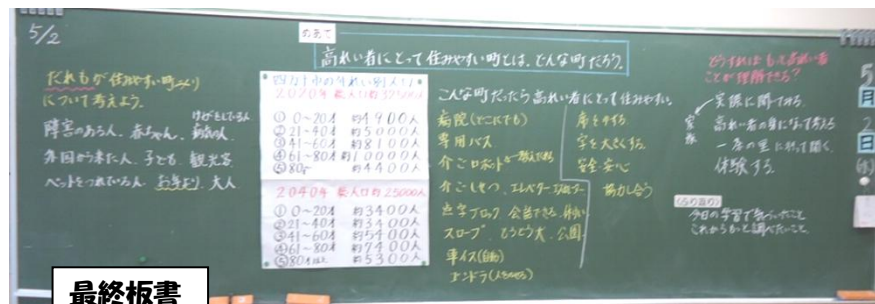 5/2
めあて
高れい者にとって住みやすい町とは、どんな町だろう。
だれもが住みやすい町づくり
について考えよう。
けがをしている人
障害のある人、赤ちゃん、妊婦の人
外国から来た人、子ども、観光客
ペットをつれている人、お年より、大人
四万十市の年れい別人口
2020年 総人口約32500人
① 0~20才 約4900人
② 21~40才 約5000人
③ 41~60才 約8100人
④ 61~80才 約10000人
⑤ 80才 約4400人
2040年 総人口約25000人
① 0~20才 約3400人
② 21~40才 約3400人
③ 41~60才 約5400人
④ 61~80才 約7400人
⑤ 80才以上 約5300人
こんな町だったら高れい者にとって住みやすい。
病院(どこにでも)
専用バス
介ごロボット
介ごしせつ、エレベーター
点字ブロック 会話できる
スロープ、もうどう犬、公園
車イス(自動)
字を大きくする
安全・安心
協力し合う
どうすればもっと高れい者
ことが理解できる?
家族
実際に聞いてみる
高れい者の身になって考える
体験する
<ふり返り>
今日の学習で気づいたこと
これからもっと調べたいこと
5
月
2
日
(水)
最終板書